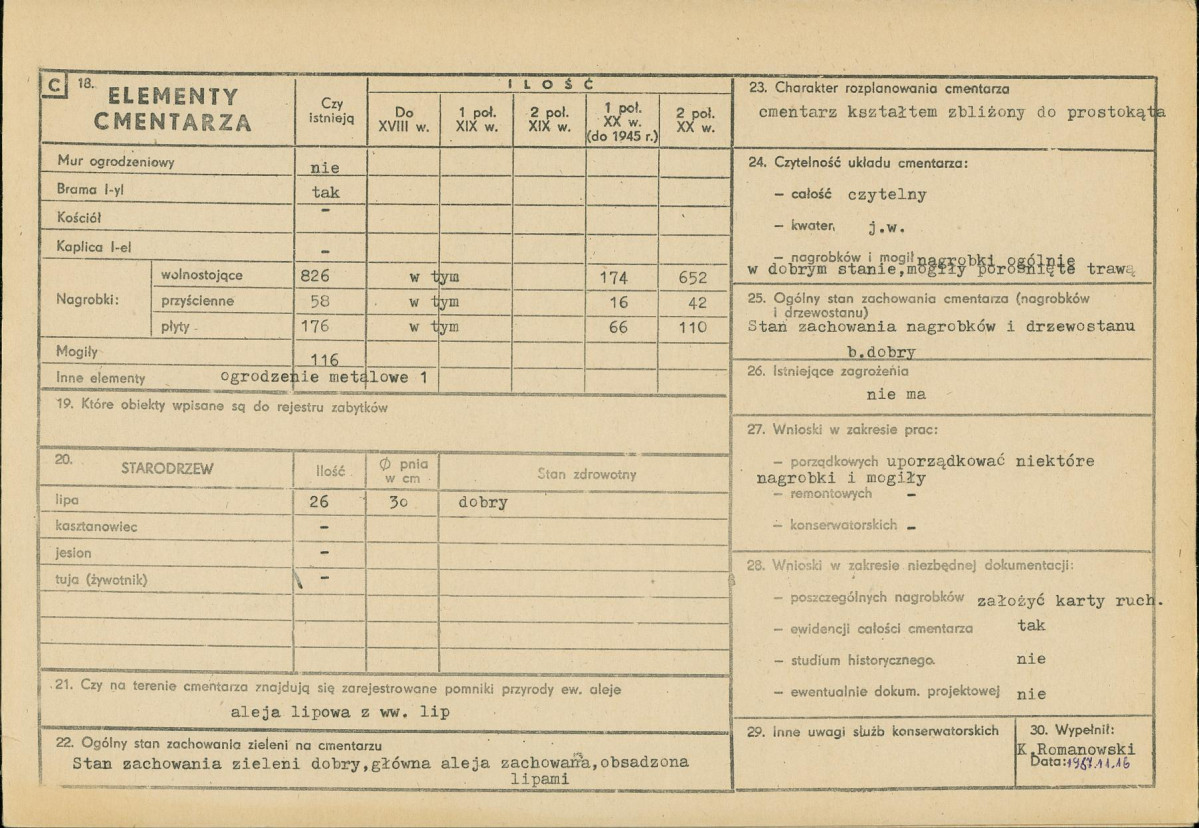 C 18. ELEMENTY CMENTARZA
Czy istnieją
ILOŚĆ
Do XVIII w.
1 poł. XIX w.
2 poł. XIX w.
1 poł. XX w. (do 1945 r.)
2 poł. XX w.
Mur ogrodzeniowy nie
Brama I-yl tak
Kościół -
Kaplica I-el -
Nagrobki:
wolnostojące 826 w tym 174 652
przyścienne 58 w tym 16 42
płyty 176 w tym 66 110
Mogiły 116
Inne elementy ogrodzenie metalowe 1
19. Które obiekty wpisane są do rejestru zabytków
20. STARODRZEW Ilość Ø pnia w cm Stan zdrowotny
lipa 26 30 dobry
kasztanowiec -
jesion -
tuja (żywotnik) -
21. Czy na terenie cmentarza znajdują się zarejestrowane pomniki przyrody ew. aleje
aleja lipowa z ww. lip
22. Ogólny stan zachowania zieleni na cmentarzu
Stan zachowania zieleni dobry,główna aleja zachowana,obsadzona
lipami
23. Charakter rozplanowania cmentarza
cmentarz kształtem zbliżony do prostokąta
24. Czytelność układu cmentarza:
— całość czytelny
— kwater, j.w.
— nagrobków i mogił nagrobki ogólnie
w dobrym stanie,mogiły porośnięte trawą
25. Ogólny stan zachowania cmentarza (nagrobków
i drzewostanu)
Stan zachowania nagrobków i drzewostanu
b.dobry
26. Istniejące zagrożenia
nie ma
27. Wnioski w zakresie prac:
— porządkowych uporządkować niektóre
nagrobki i mogiły
— remontowych -
— konserwatorskich -
28. Wnioski w zakresie niezbędnej dokumentacji:
— poszczególnych nagrobków założyć karty ruch.
— ewidencji całości cmentarza tak
— studium historycznego. nie
— ewentualnie dokum. projektowej nie
29. Inne uwagi służb konserwatorskich
30. Wypełnił:
K.Romanowski
Data: 1987.11.16